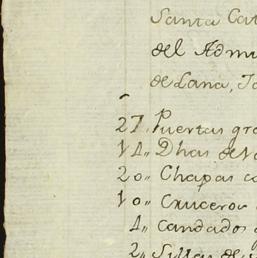 Santa Cat
del Admi
de Lana, Ja
27. Puertas gra
14,, Dhas de v
20,, Chapas co
10,, Cruceros
4,, Candados
2,, Sillas de